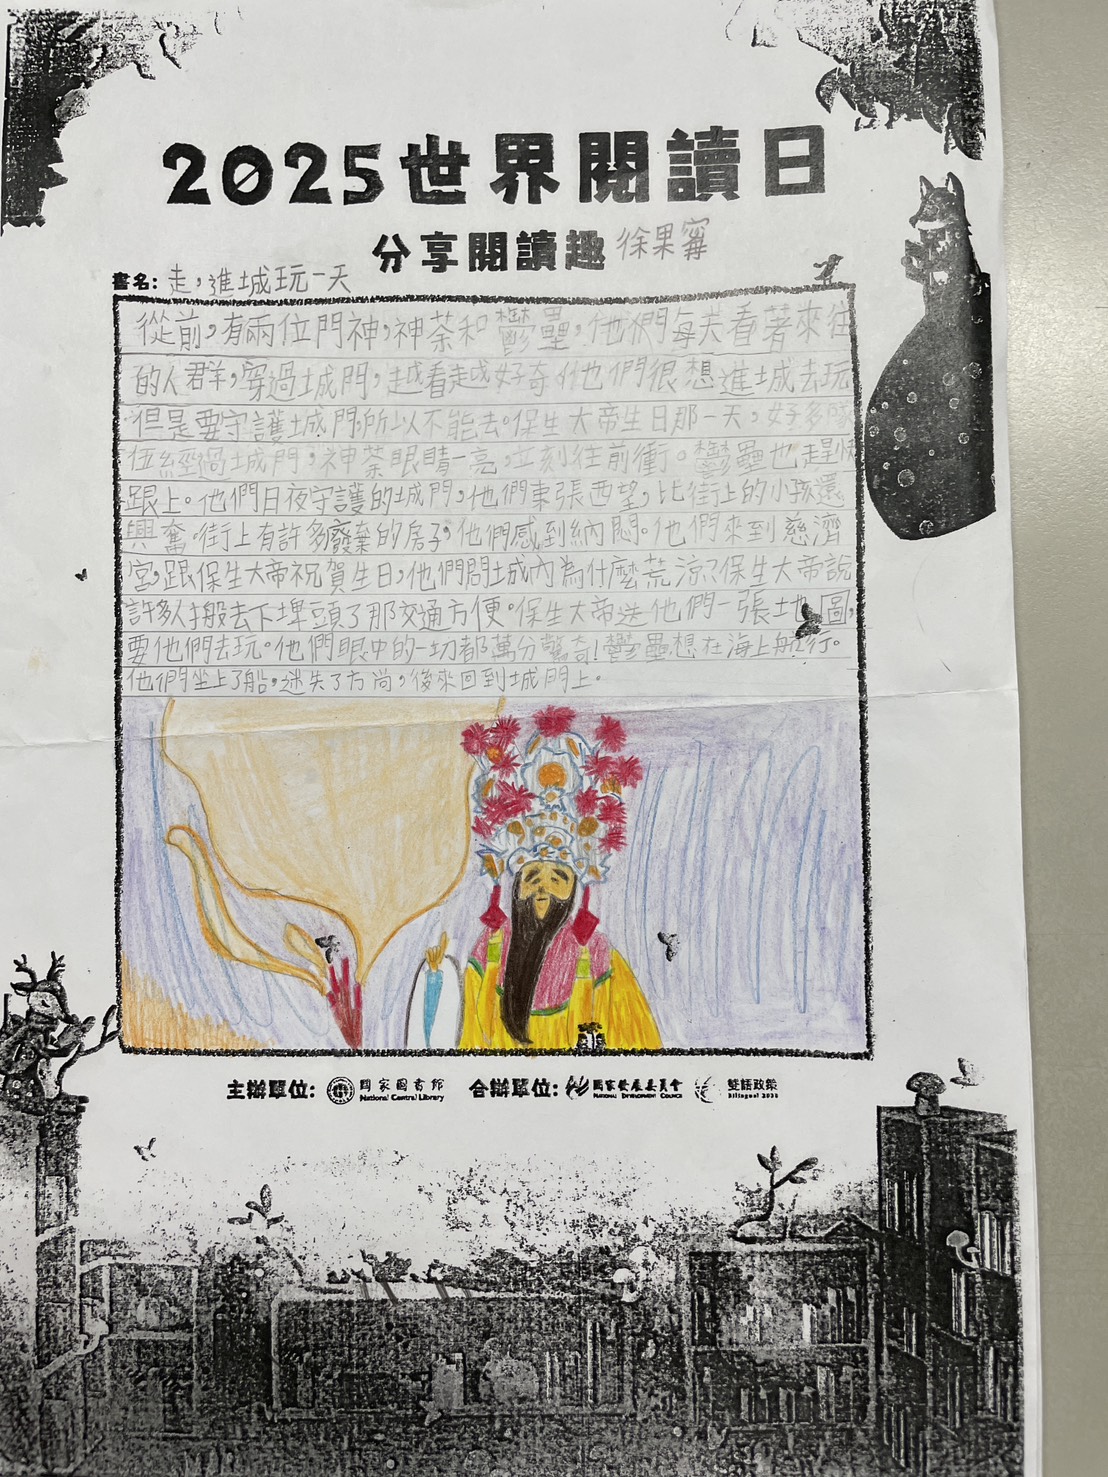 2025世界閱讀日
分享閱讀趣 徐果寗
書名: 走,進城玩一天
從前,有兩位門神,神荼和鬱壘,他們每天看著來往
的人群,穿過城門,越看越好奇。他們很想進城去玩
但是要守護城門,所以不能去。保生大帝生日那一天,好多隊
伍經過城門,神荼眼睛一亮,立刻往前衝。鬱壘也趕快
跟上。他們日夜守護的城門,他們東張西望,比街上的小孩還
興奮。街上有許多廢棄的房子,他們感到納悶。他們來到慈濟
宮,跟保生大帝祝賀生日,他們問城內為什麼荒涼?保生大帝說
許多人搬去下埤頭了那交通方便。保生大帝送他們一張地圖,
要他們去玩。他們眼中的一切都萬分驚奇!鬱壘想在海上航行。
他們坐上了船,迷失了方尚,後來回到城門上。
主辦單位: 國家圖書館 National Central Library 合辦單位: 國家發展委員會 NATIONAL DEVELOPMENT COUNCIL 雙語政策 Bilingual 2030